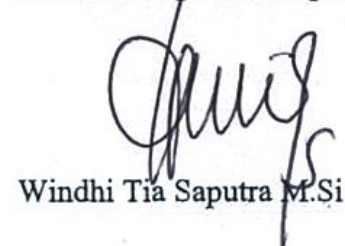 Windhi Tia Saputra M.Si